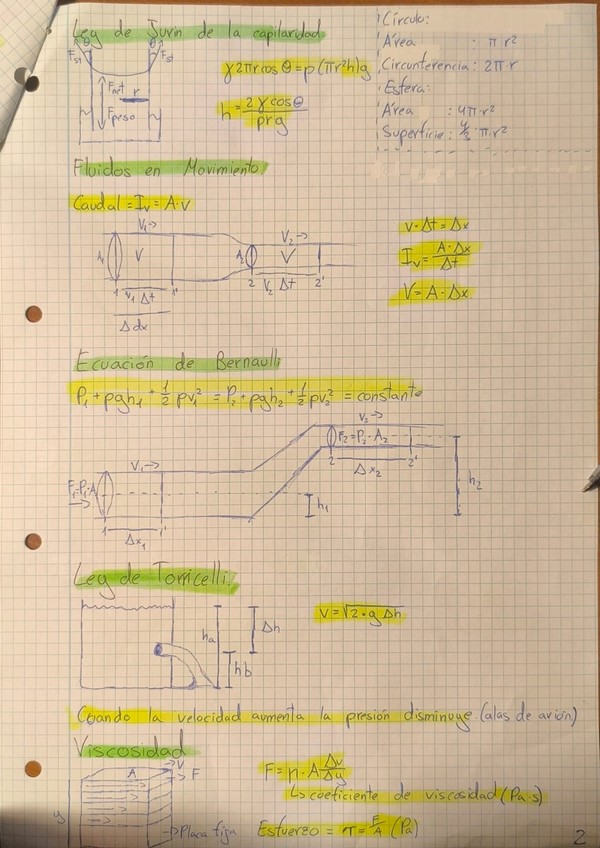 Ley de Jurin de la capilaridad
Fst θ θ Fst
Fnet r
Fpeso
γ2πrcos θ = ρ(πr²h)g
h = 2γcosθ / ρrg
Círculo:
Área : π r²
Circunferencia: 2π·r
Esfera:
Área : 4π·r²
Superficie: 4/3·π·r²
Fluidos en Movimiento
Caudal = Iv = A·v
V₁→ V₂→
A₁ V A₂ V
1 v₁ Δt 1' 2 v₂ Δt 2'
Δdx
v·Δt = Δx
Iv = A·Δx / Δt
V = A·Δx
Ecuación de Bernaulli
P₁ + ρgh₁ + 1/2 ρv₁² = P₂ + ρgh₂ + 1/2 ρv₂² = constante
V₂→
F₂=P₂·A₂
2 Δx₂ 2'
V₁→
F₁=P₁·A
h₁ h₂
1 Δx₁ 1'
Ley de Torricelli
ha Δh
hb
V = √2·g Δh
Cuando la velocidad aumenta la presión disminuye (alas de avión)
Viscosidad
A →V
→ F
y
→Placa fija
F = η·A Δv/Δy
↳ coeficiente de viscosidad (Pa·s)
Esfuerzo = π = F/A (Pa)
2